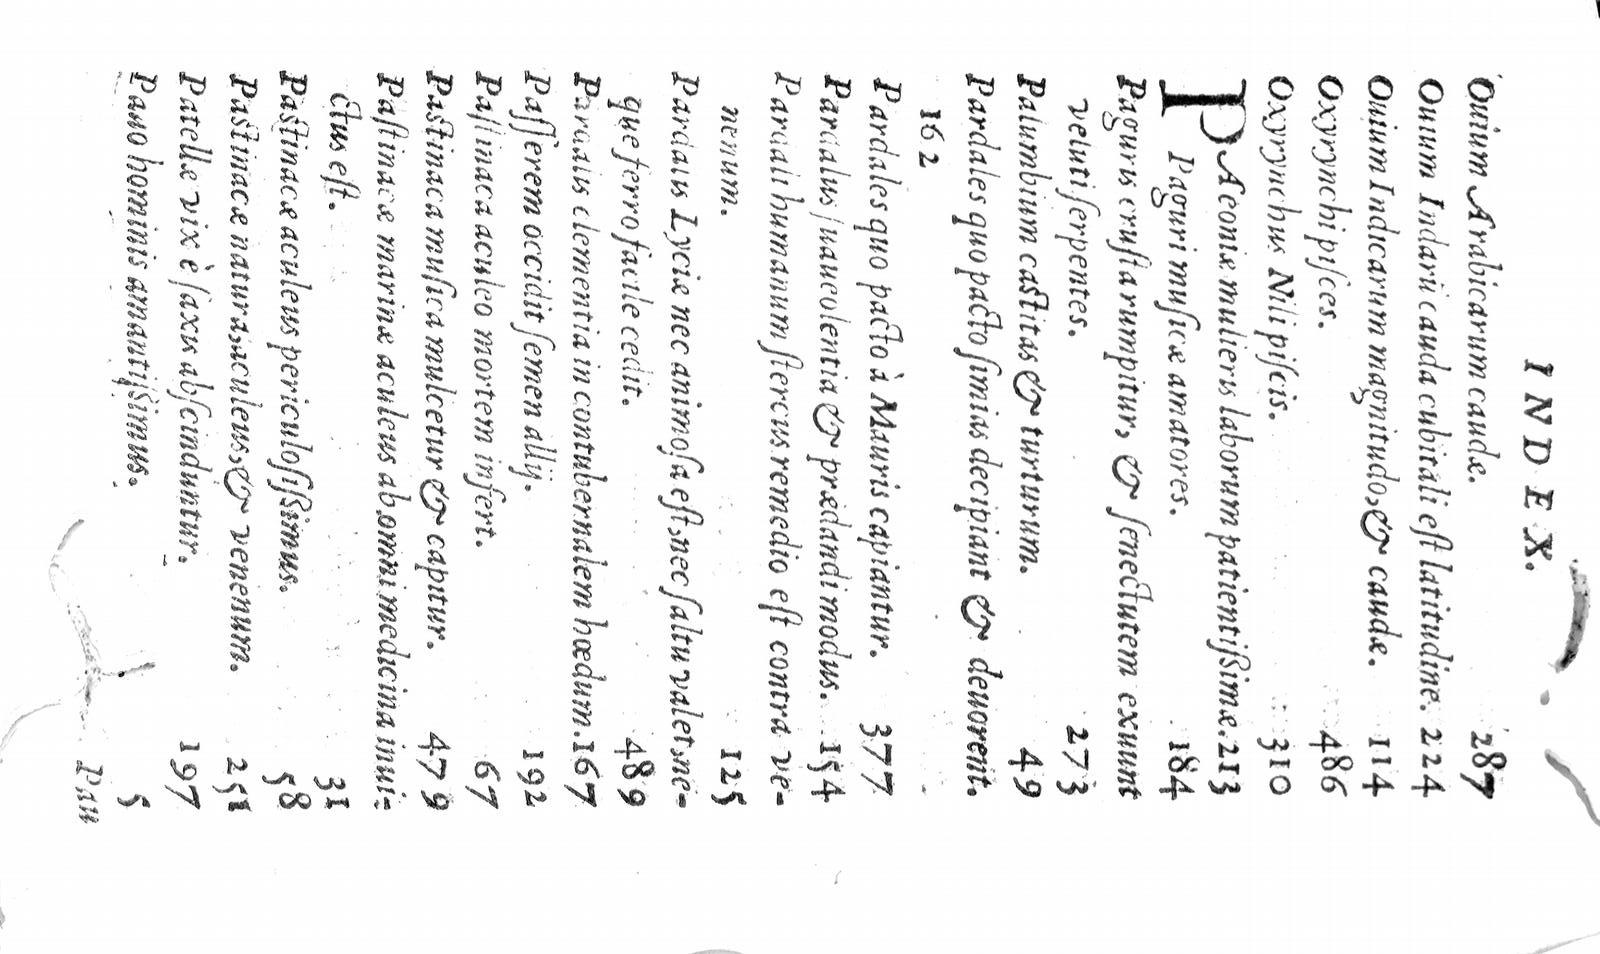 INDEX.
Ouium Arabicarum caudæ. 287
Ouium Indarū cauda cubitali eſt latitudine. 224
Ouium Indicarum magnitudo, & caudæ. 114
Oxyrynchi piſces. 486
Oxyrynchus Nili piſcis. 310
PAeoniæ mulieris laborum patientiſsimæ. 213
Paguri muſicæ amatores. 184
Paguris cruſta rumpitur, & ſenectutem exuunt
veluti ſerpentes. 273
Palumbium caſtitas & turturum. 49
Pardales quo pacto ſimias decipiant & deuorent.
162
Pardales quo pacto à Mauris capiantur. 377
Pardalus ſuaueolentia & prædandi modus. 154
Pardali humanum ſtercus remedio eſt contra ve-
nenum. 125
Pardalis Lyciæ nec animoſa eſt, nec ſaltu valet, ne-
que ferro facile cedit. 489
Pardalis clementia in contubernalem hœdum. 167
Paſſerem occidit ſemen allij. 192
Paſtinaca aculeo mortem infert. 67
Paſtinaca muſica mulcetur & capitur. 479
Paſtinacæ marinæ aculeus ab omni medicina inui-
ctus eſt. 31
Paſtinacæ aculeus periculoſiſsimus. 58
Paſtinacæ natura, aculeus, & venenum. 251
Patellæ vix è ſaxis abſcinduntur. 197
Pauo hominis amantiſsimus. 5
Pau